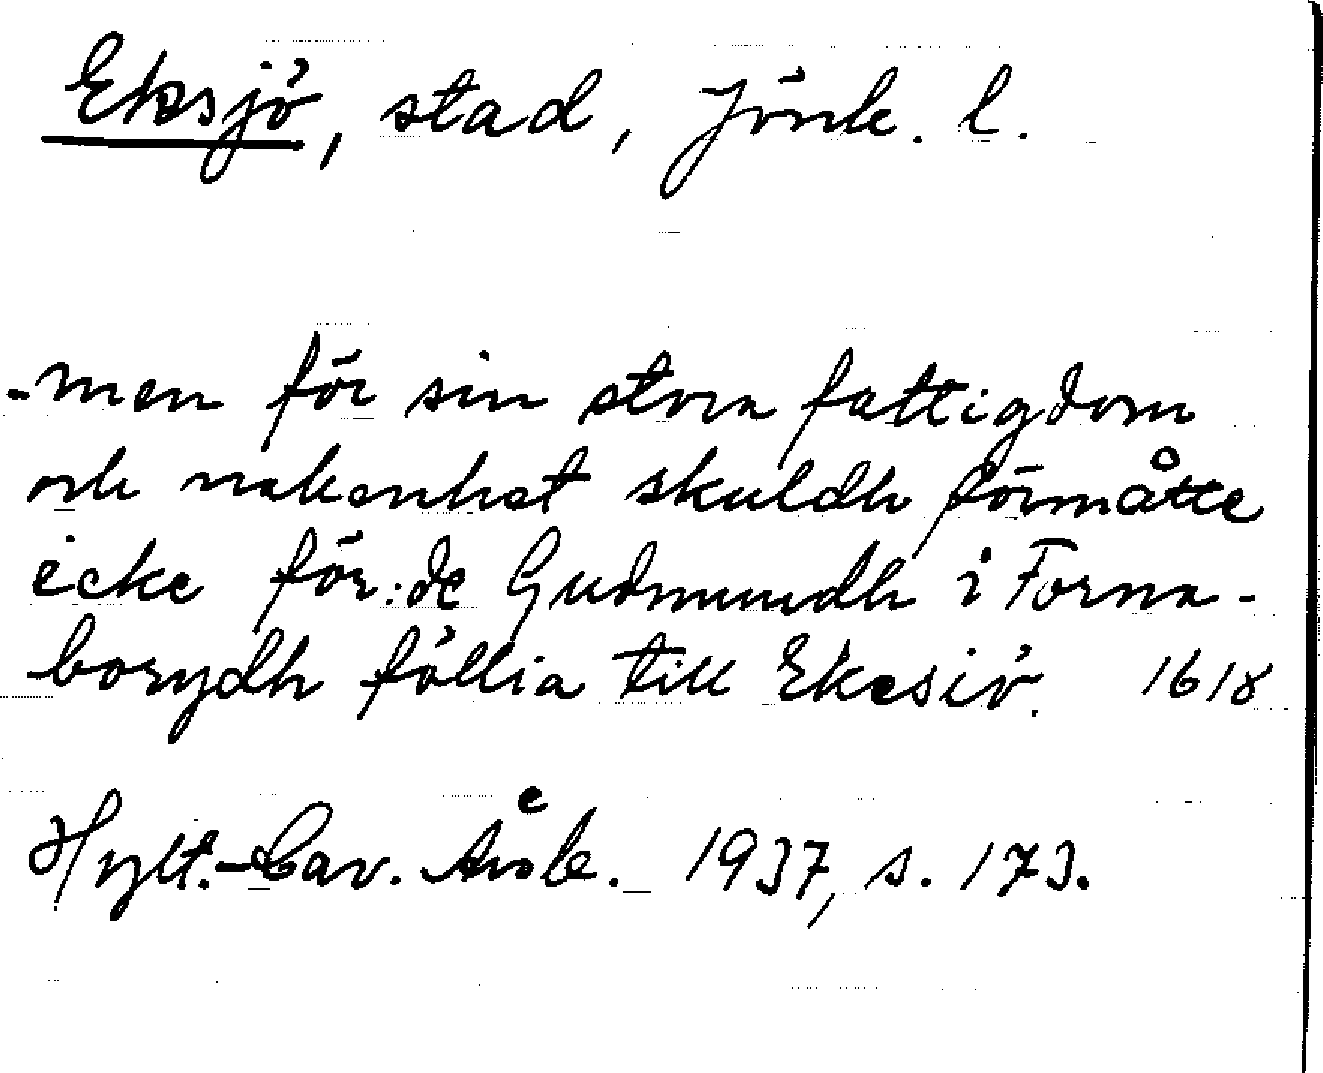 Eksjö, stad, Jönk. l.
-men för sin stora fattigdom
och nakenhet skuldh förmåtte
icke för:de Gudmundh i Torna-
borydh föllia till Ekesiö. 1618
Hylt.-Cav. Årsb. 1937, s. 173.